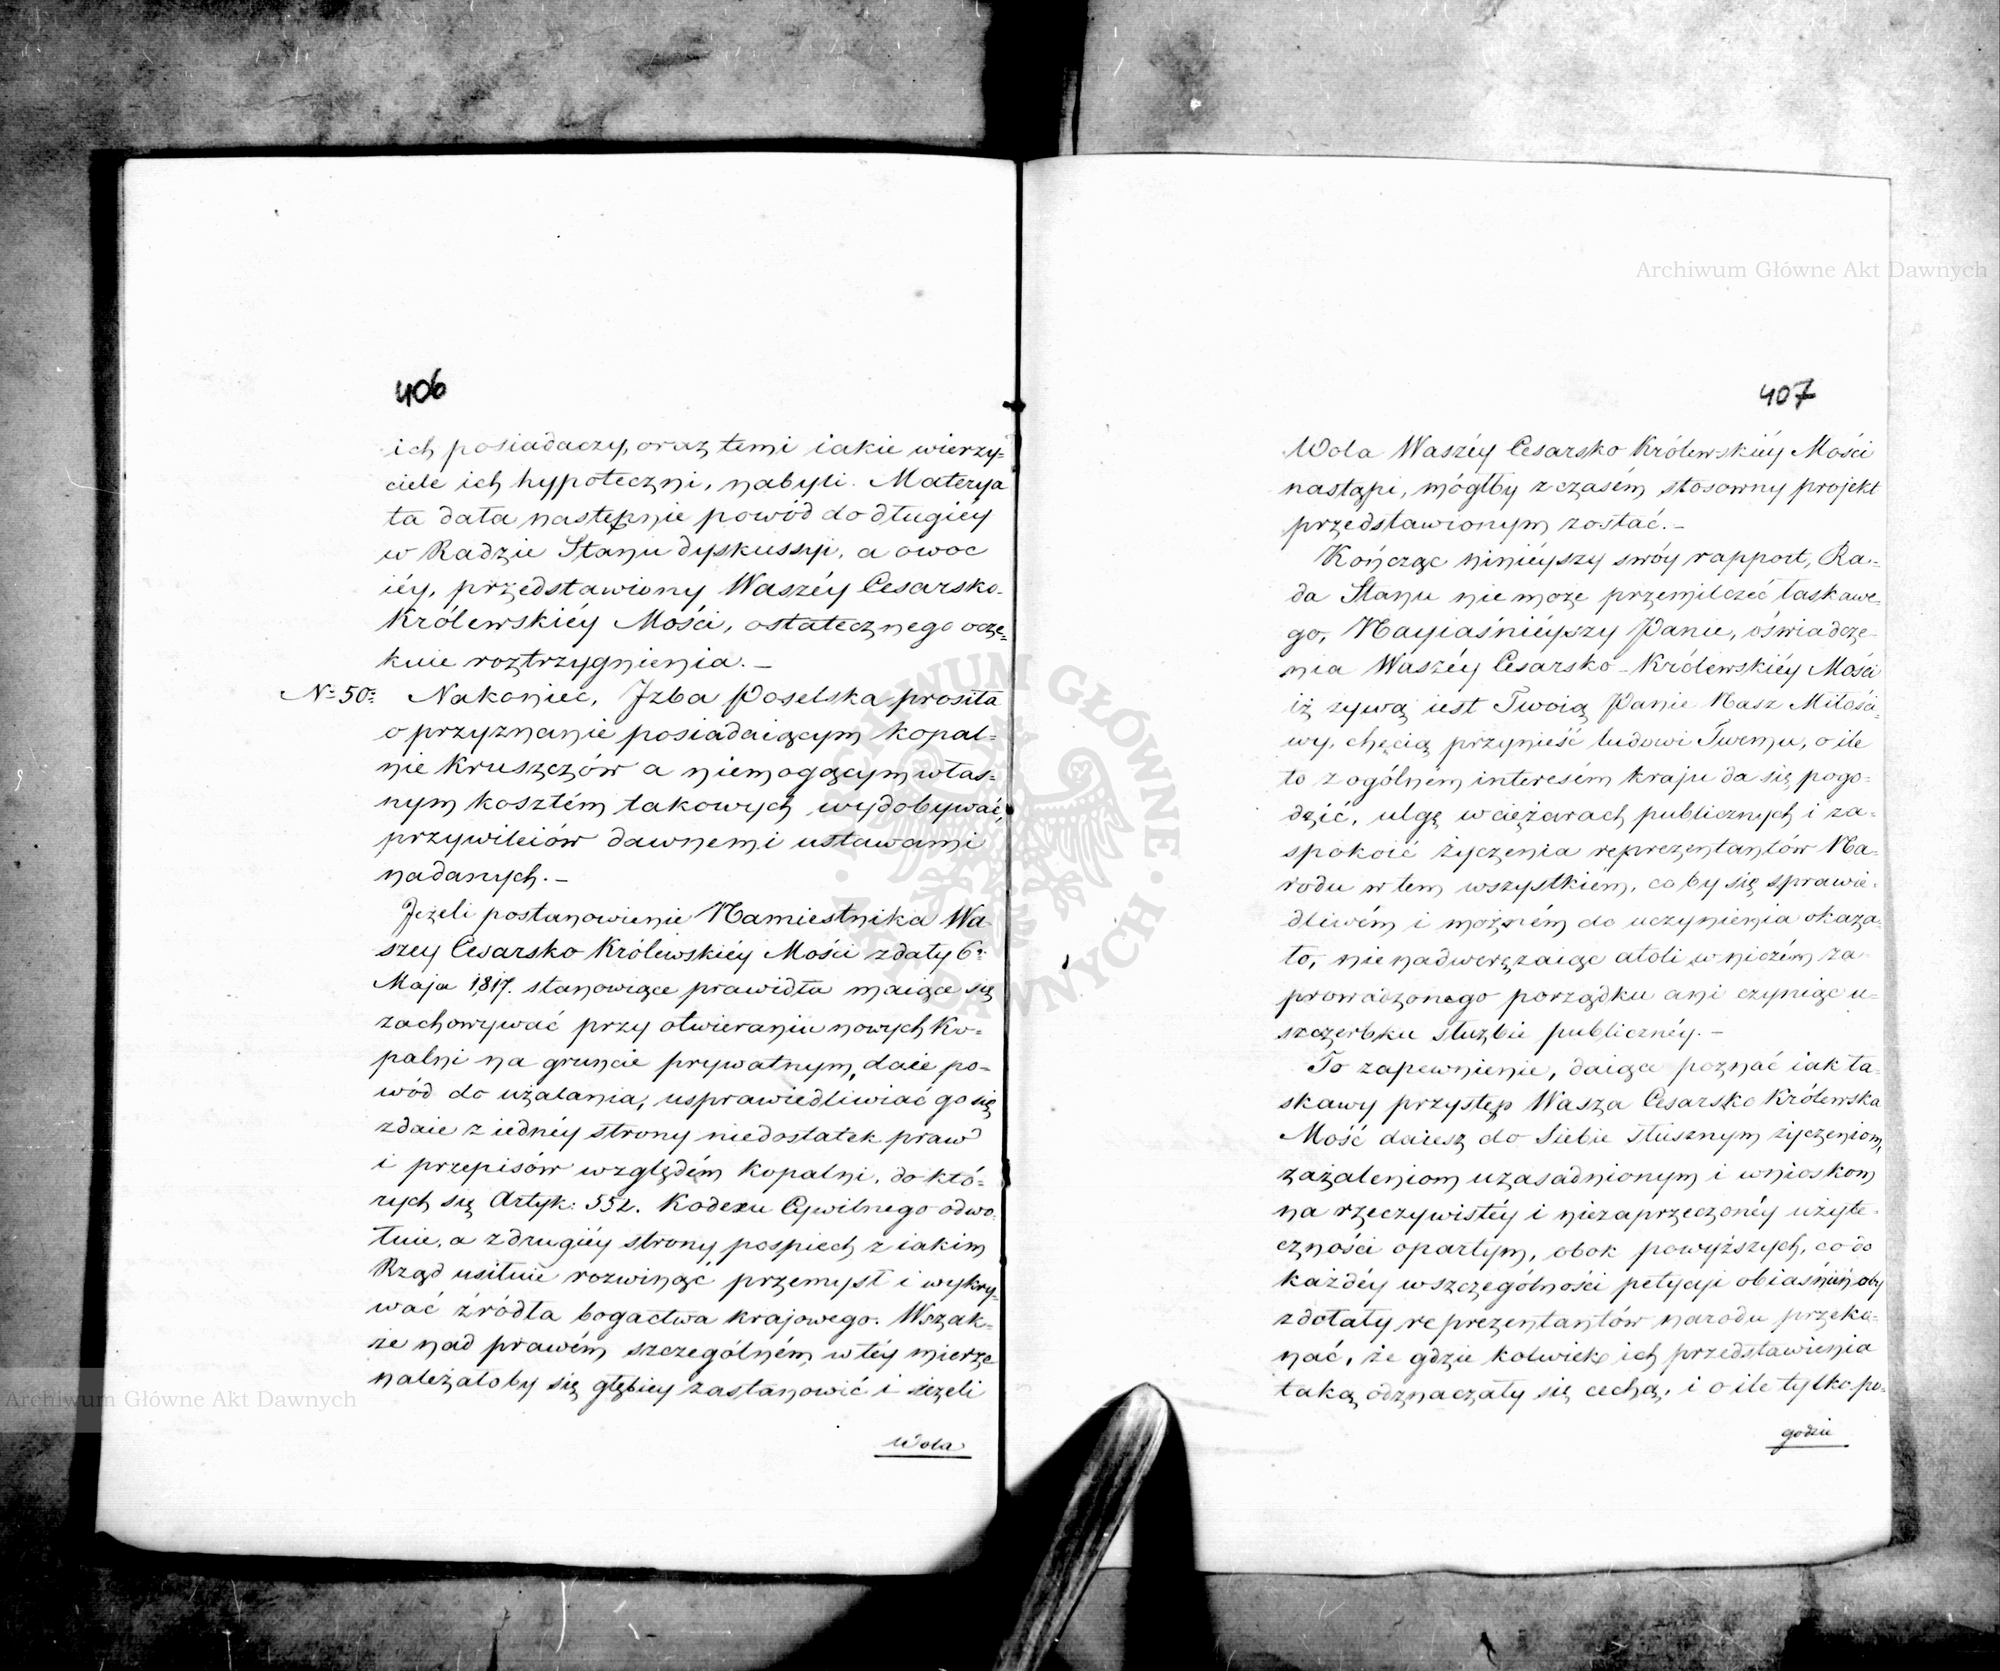 406
ich posiadaczy, oraz temi iakie wierzy=
ciele ich hypoteczni, nabyli. Materya
ta dała następnie powód do długiey
w Radzie Stanu dyskussyi, a owoc
iéy, przedstawiony Waszéy Cesarsko-
Królewskiéy Mości, ostatecznego ocze=
kuie roztrzygnienia. –
No 50o Nakoniec, Izba Poselska prosiła
o przyznanie posiadaiącym kopal=
nie kruszczów a niemogącym włas=
nym kosztém takowych wydobywać,
przywileiów dawnemi ustawami
nadanych. –
Jeżeli postanowienie Namiestnika Wa
szey Cesarsko Królewskiéy Mości z daty 6o
Maja 1817. stanowiące prawidła maiące się
zachowywać przy otwieraniu nowych Ko=
palni na gruncie prywatnym, daie po=
wód do użalania, usprawiedliwiać go się
zdaie z iednéy strony niedostatek praw
i przepisów względém kopalni, do któ=
rych się Artyk: 552. Kodexu Cywilnego odwo=
łuie, a z drugiéy strony pospiech z iakim
Rząd usiłuie rozwinąć przemysł i wykry=
wać źródła bogactwa krajowego. Wszak=
że nad prawém szczególném w téy mierze
należałoby się głębiey zastanowić i ieżeli
Wola
407
Wola Waszéy Cesarsko Królewskiéy Mości
nastąpi, mógłby z czasém stosowny projekt
przedstawionym zostać. –
Kończąc ninieyszy swóy rapport, Ra=
da Stanu nie może przemilczeć łaskawe=
go, Nayiaśnieyszy Panie, oświadcze=
nia Waszéy Cesarsko-Królewskiéy Mości
iż żywą iest Twoią Panie Nasz Miłości=
wy, chęcią przynieść ludowi Twemu, o ile
to z ogólném interesém kraju da się pogo=
dzić, ulgę w ciężarach publicznych i za=
spokoić życzenia reprezentantów Na=
rodu w tem wszystkiem, co by się sprawie=
dliwém i możném do uczynienia okaza=
ło, nie nadweręzaiąc atoli w niczém za=
prowadzonego porządku ani czyniąc u=
szczerbku służbie publicznéy. –
To zapewnienie, daiące poznać iak ła=
skawy przystęp Wasza Cesarsko Królewska
Mość daiesz do Siebie słusznym życzeniom,
zażaleniom uzasadnionym i wnioskom
na rzeczywistéy i niezaprzeczonéy użyte=
czności opartym, obok powyższych, co do
każdéy w szczególności petycyi obiaśnień oby
zdołały reprezentantów narodu przeko=
nać, że gdzie kolwiek ich przedstawienia
taką odznaczały się cechą, i o ile tylko po=
godzić
Archiwum Główne Akt Dawnych
Archiwum Główne Akt Dawnych
ARCHIWUM GŁÓWNE AKT DAWNYCH